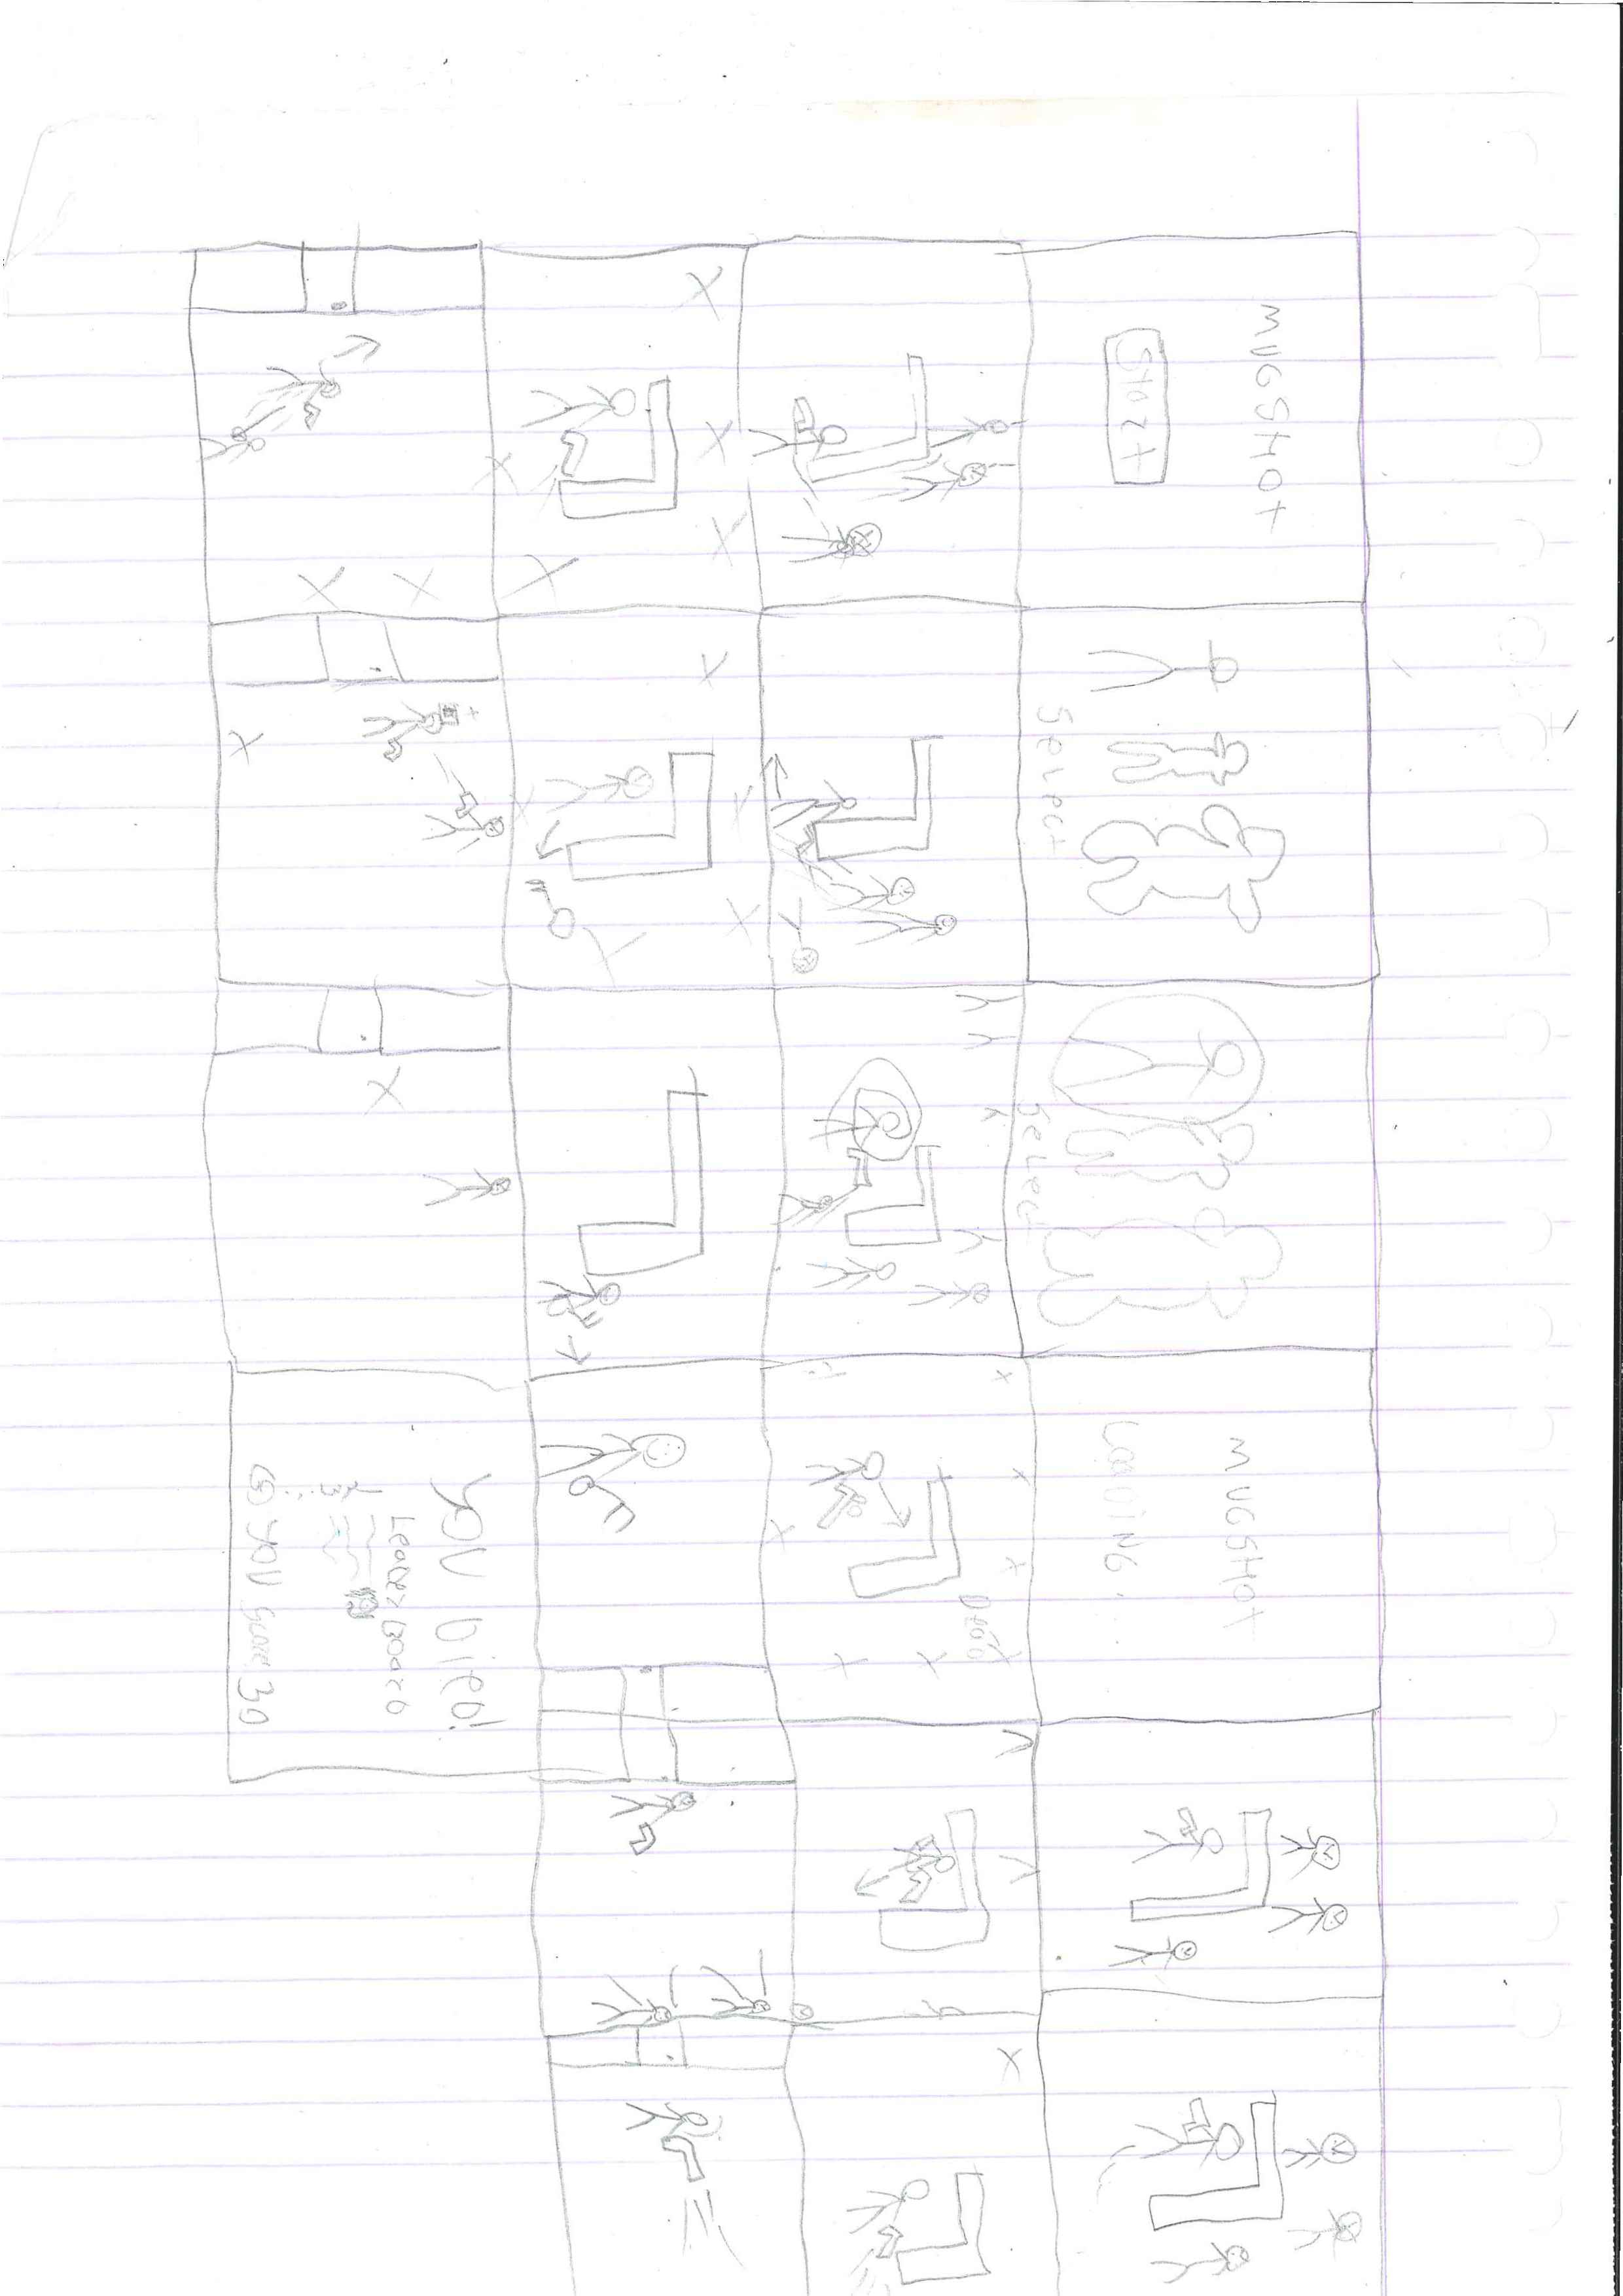 MUGSHOT
START
SELECT
SELECT
MUGSHOT
LOADING.
Dead
YOU DieD!
LeadeRBOARD
1.
2.
3.
YOU Score 30